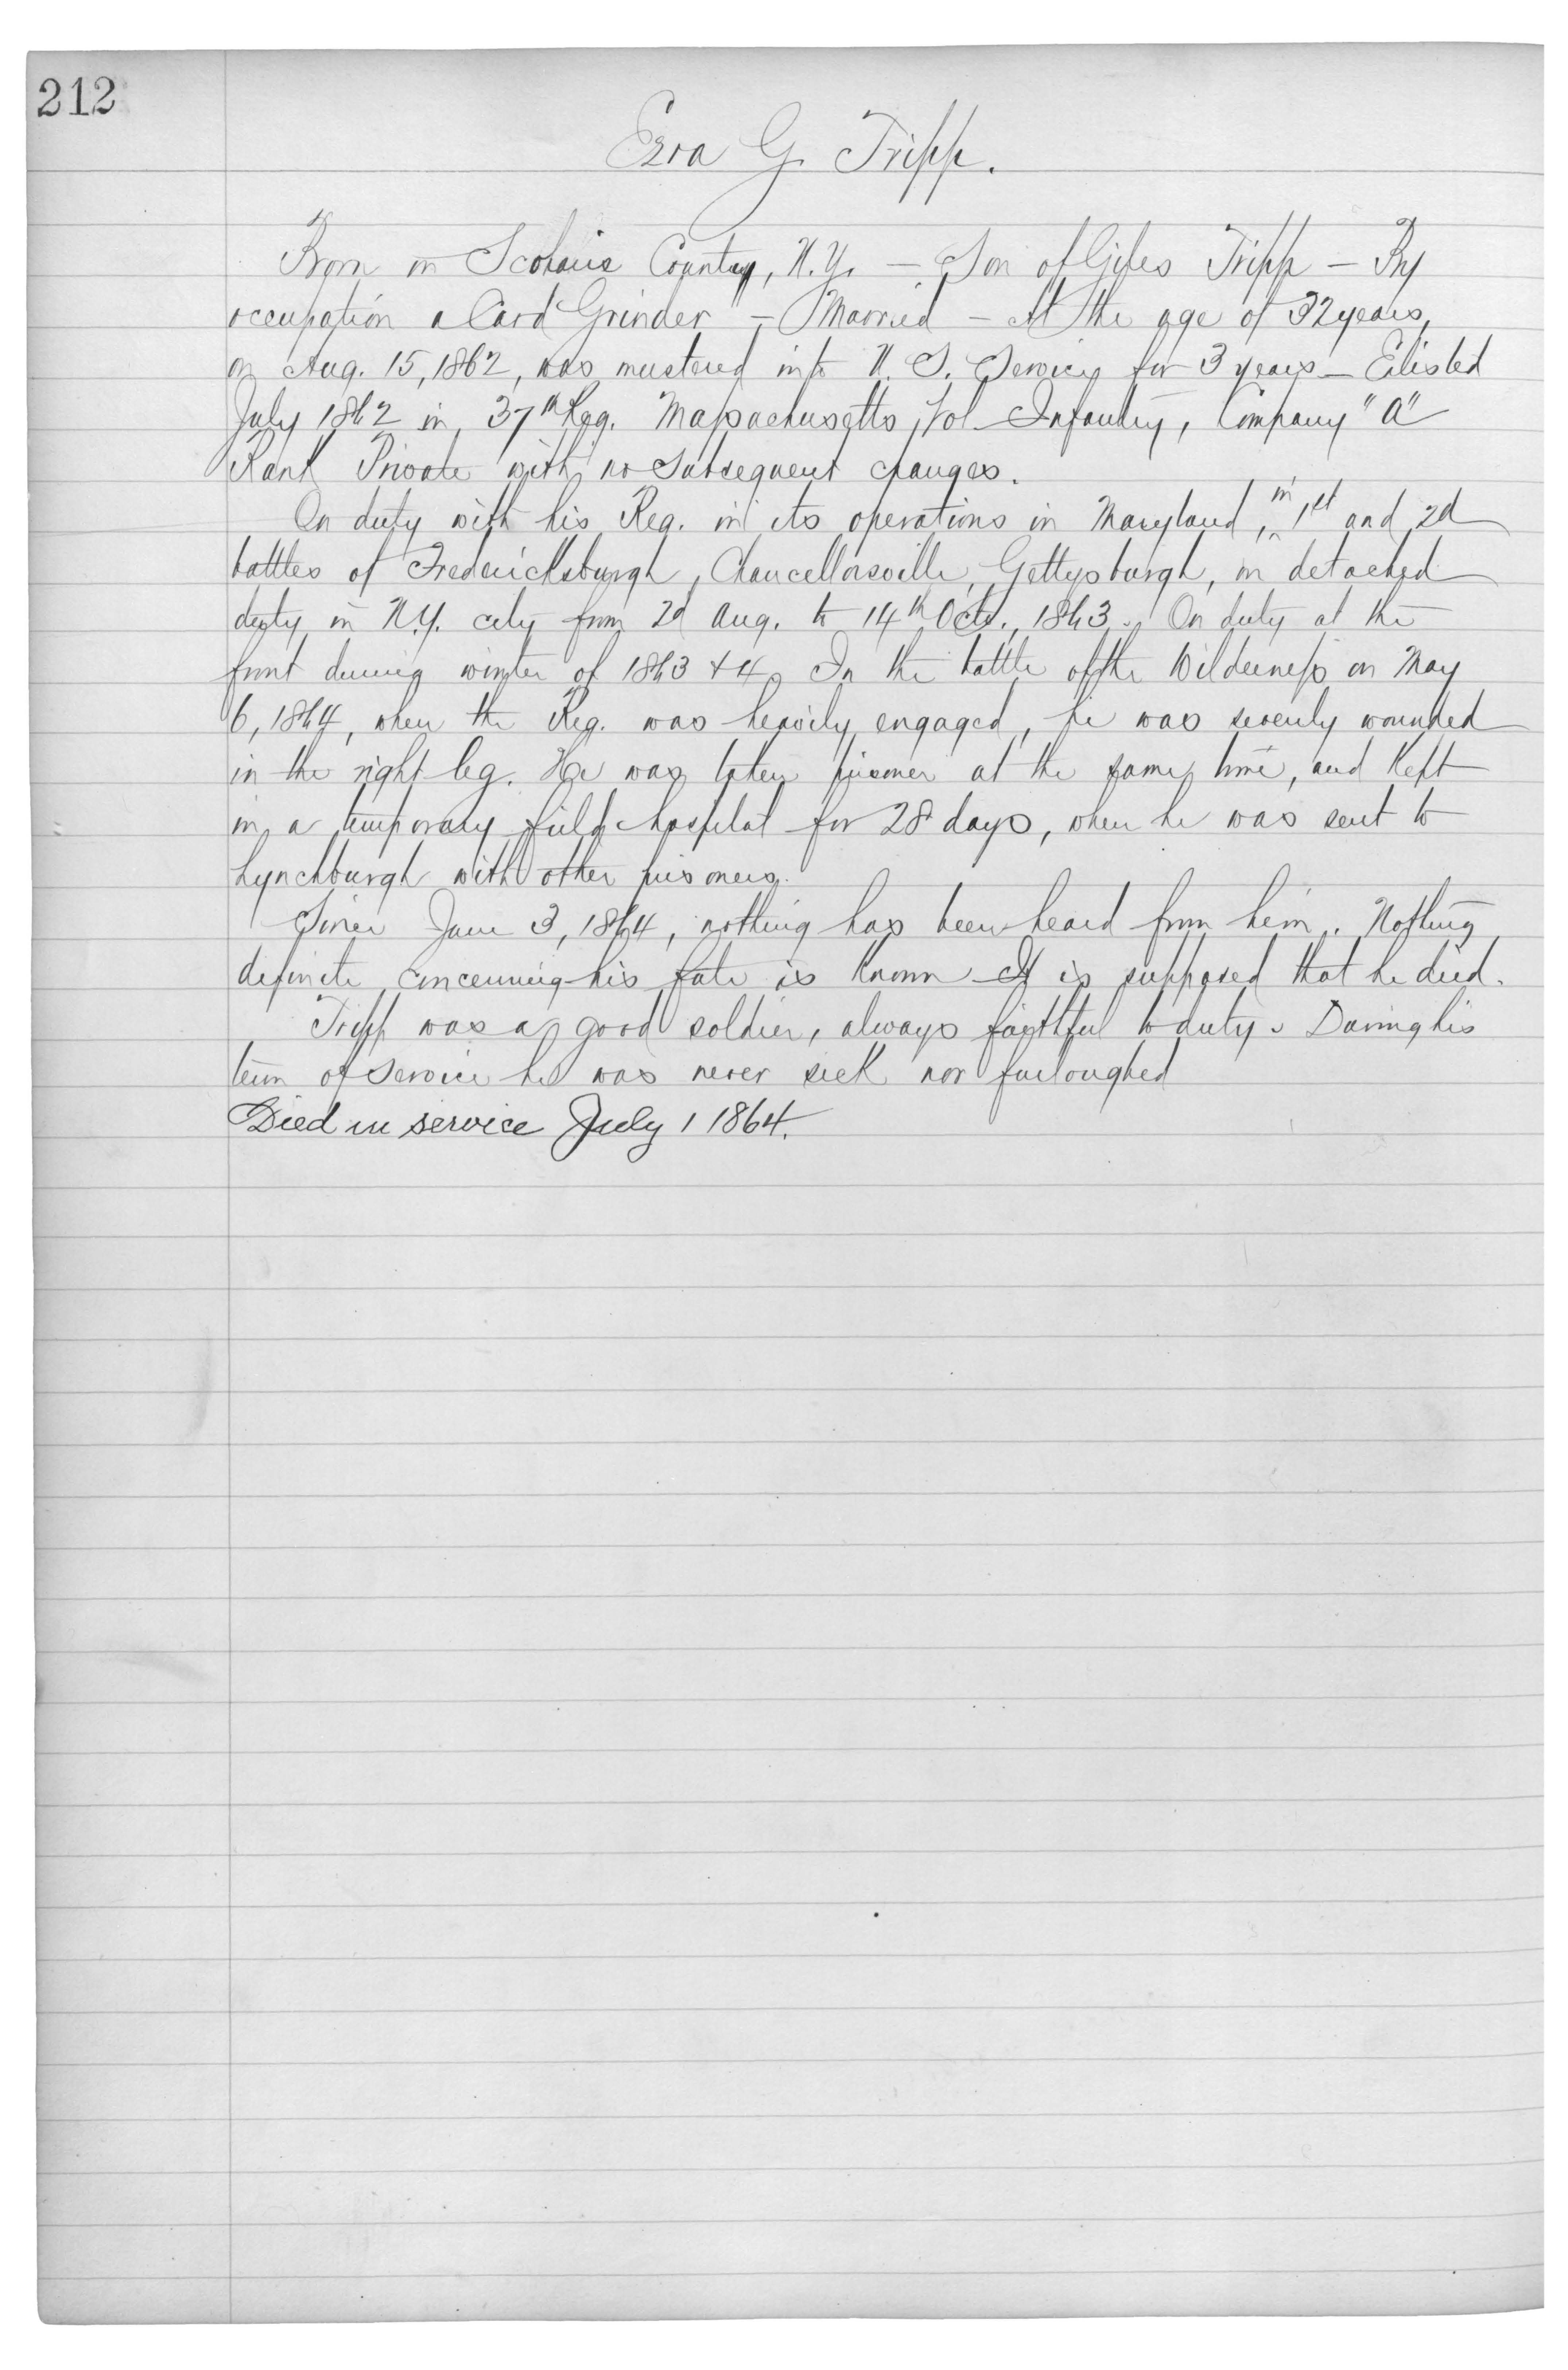 212
Ezra G. Tripp.
Born in Scoharie County, N.Y. — Son of Giles Tripp — By
occupation a Card Grinder — Married — At the age of 32 years,
on Aug. 15, 1862, was mustered into U. S. Service for 3 years — Elisted
July 1862 in 37th Reg. Massachusetts Vol Infantry, Company "A"
Rank Private with no subsequent changes.
On duty with his Reg. in its operations in Maryland, in 1st and 2d
battles of Fredericksburgh, Chancellorsville, Gettysburgh, on detached
duty in N.Y. city from 2d Aug. to 14th Oct., 1863. On duty at the
front during winter of 1863 + 4. In the battle of the Wilderness on May
6, 1864, when the Reg. was heavily engaged, he was severly wounded
in the right leg. He was taken prisoner at the same time, and kept
in a temporary field hospital for 28 days, when he was sent to
Lynchburgh with other prisoners.
Since June 3, 1864, nothing has been heard from him. Nothing
definite concerning his fate is known — It is supposed that he died.
Tripp was a good soldier, always faithful to duty. During his
term of service he was never sick nor furloughed
Died in service July 1 1864.